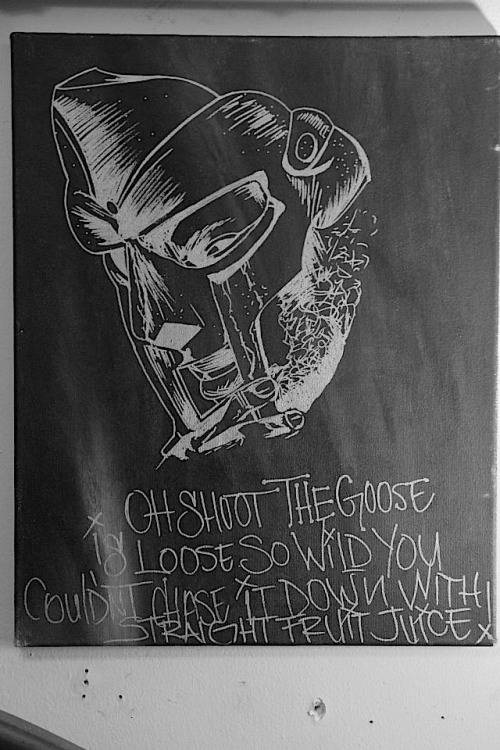 x OH SHOOT THE GOOSE
IS LOOSE SO WILD YOU
COULDN'T CHASE IT DOWN WITH
STRAIGHT FRUIT JUICE x